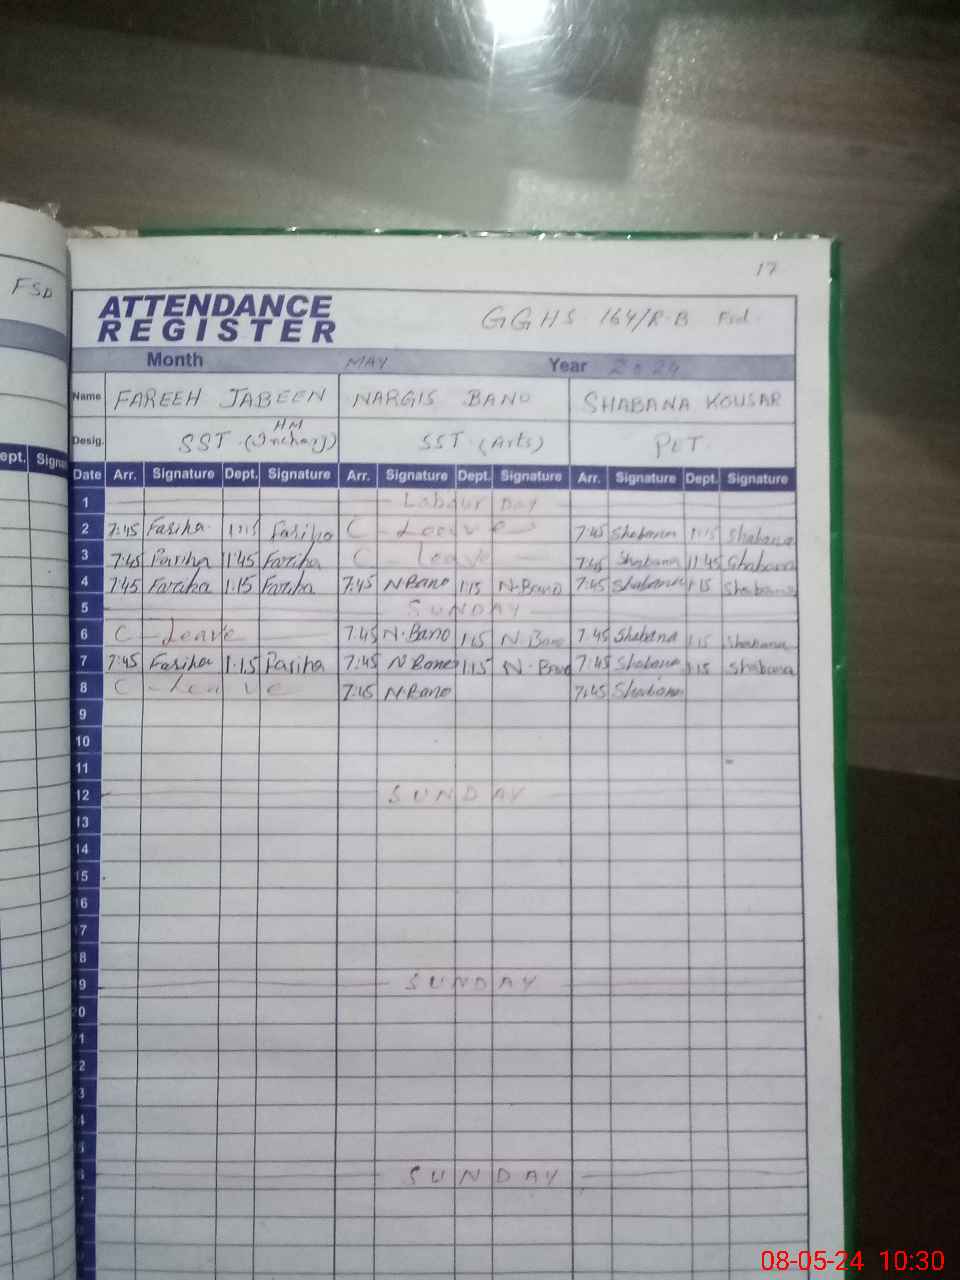 17
FSD
ATTENDANCE
REGISTER
GGHS 164/R.B Fsd.
Month MAY Year 2024
Name FAREEH JABEEN NARGIS BANO SHABANA KOUSAR
HM
Desig. SST (Incharj) SST (Arts) PET
ept. Sign
Date Arr. Signature Dept. Signature Arr. Signature Dept. Signature Arr. Signature Dept. Signature
1 Labour Day
2 7:45 Fariha 1:15 Fariha C - Leave 7:45 Shabana 1:15 Shabana
3 7:45 Fariha 11:45 Fariha C - leave 7:45 Shabana 11:45 Shabana
4 7:45 Fariha 1:15 Fariha 7:45 N-Bano 1:15 N-Bano 7:45 Shabana 1:15 Shabana
5 SUNDAY
6 C - Leave 7:45 N.Bano 1:15 N.Bano 7:45 Shabana 1:15 Shabana
7 7:45 Fariha 1:15 Fariha 7:45 N Bano 1:15 N-Bano 7:45 Shabana 1:15 Shabana
8 C - Leave 7:45 N-Bano 7:45 Shabana
9
10
11
12 SUNDAY
13
14
15
16
17
18
19 SUNDAY
20
21
22
3
4
5
6 SUNDAY
08-05-24 10:30